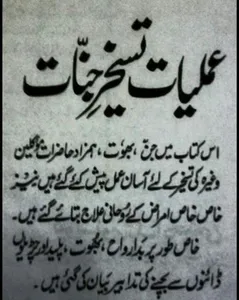 عملیات تسخیرِ جنّات
اس کتاب میں جن ، بھوت ، ہمزاد حاضرات مؤکلین
وغیرہ کی تسخیر کے لئے آسان عمل پیش کئے گئے ہیں نیز
خاص خاص امراض کے رُوحانی علاج بتائے گئے ہیں ۔
خاص طور پر بَد ارواح ، بھُوت ، پلید اور چڑیل
ڈائنوں سے بچنے کی تدابیر بیان کی گئی ہیں ۔